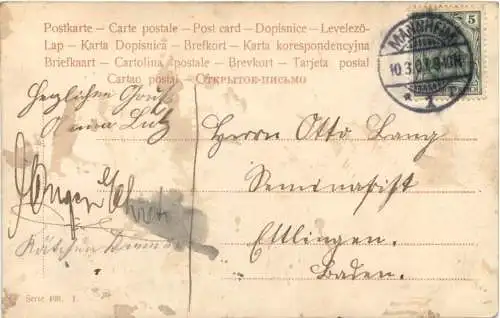 Postkarte - Carte postale - Post card - Dopisnice - Levelező-
Lap - Karta Dopisnica - Brefkort - Karta korespondencyjna
Briefkaart - Cartolina postale - Brevkort - Tarjeta postal
Cartao postal - Открытое-письмо
MANNHEIM
10.3.
1
5
Herzlichen Gruß
Anna Lutz
Herrn Otto Lang
Seminarist
Ettlingen.
Baden.
Kätchen
Serie 498. 1.